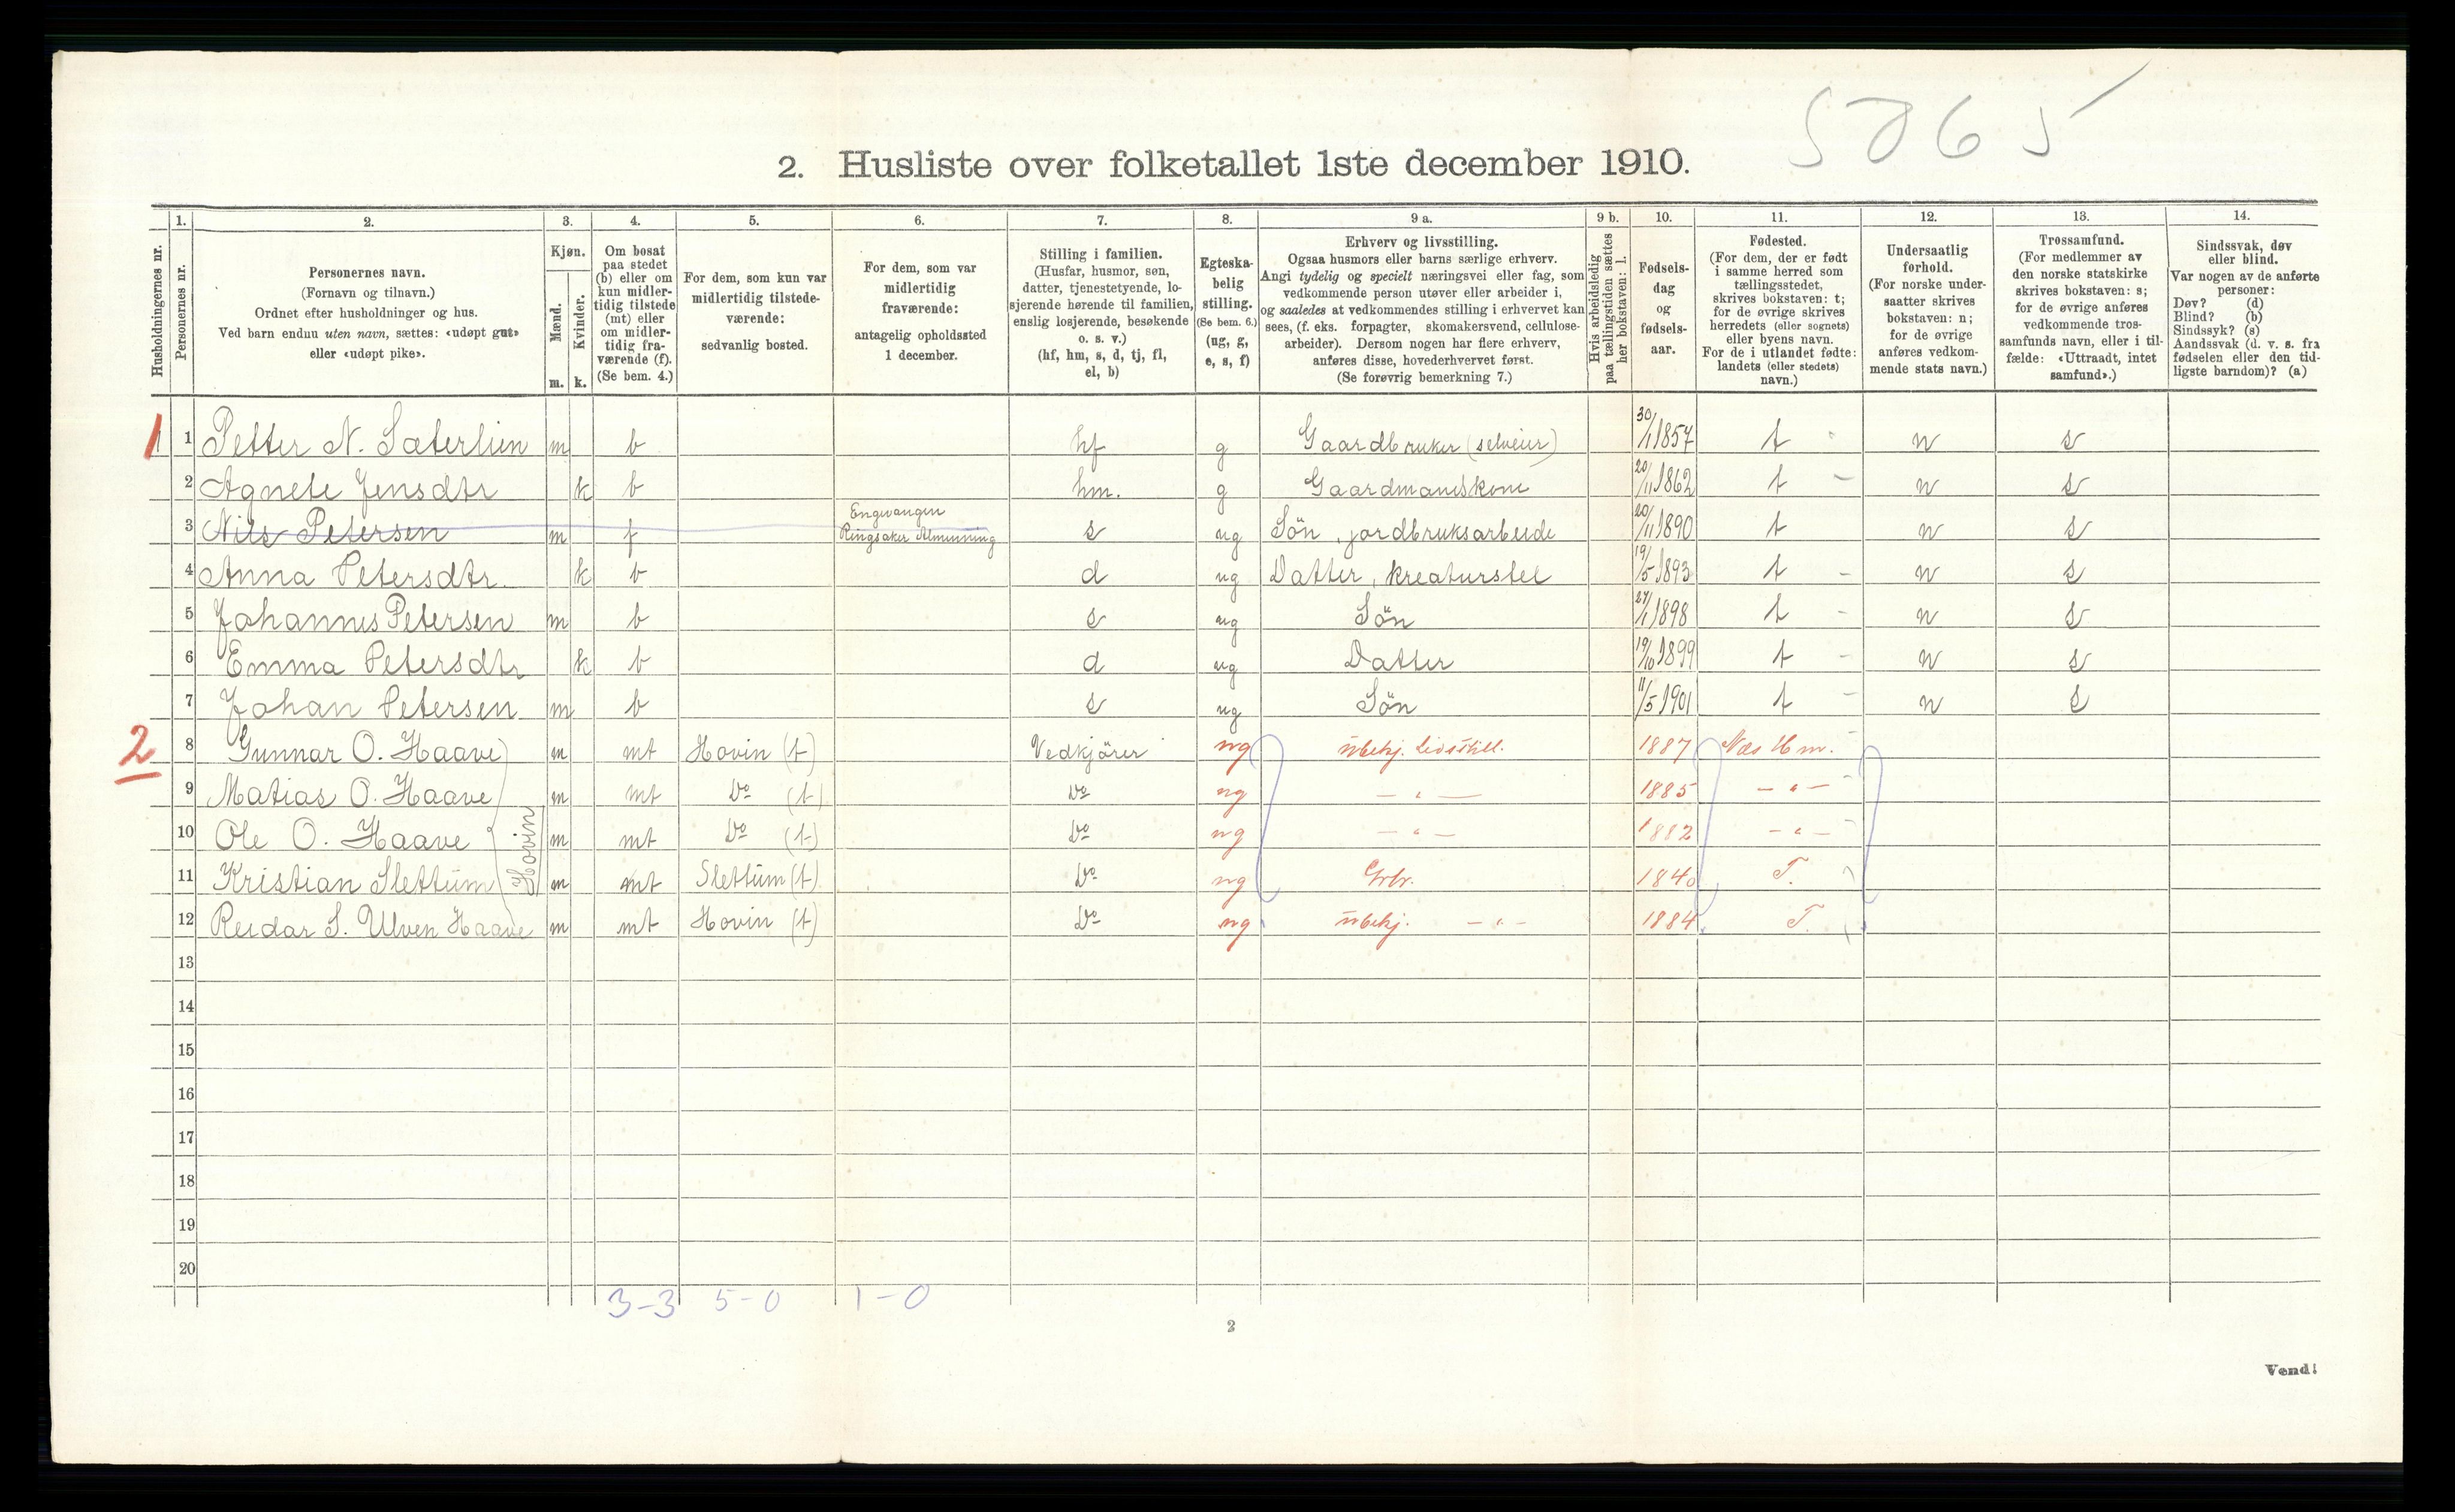 5865
2. Husliste over folketallet 1ste december 1910.
Husholdningernes nr.
1.
Personernes nr.
2.
Personernes navn.
(Fornavn og tilnavn.)
Ordnet efter husholdninger og hus.
Ved barn endnu uten navn, sættes: «udøpt gut»
eller «udøpt pike».
3.
Kjøn.
Mænd.
Kvinder.
m. k.
4.
Om bosat
paa stedet
(b) eller om
kun midler-
tidig tilstede
(mt) eller
om midler-
tidig fra-
værende (f).
(Se bem. 4.)
5.
For dem, som kun var
midlertidig tilstede-
værende:
sedvanlig bosted.
6.
For dem, som var
midlertidig
fraværende:
antagelig opholdssted
1 december.
7.
Stilling i familien.
(Husfar, husmor, søn,
datter, tjenestetyende, lo-
sjerende hørende til familien,
enslig losjerende, besøkende
o. s. v.)
(hf, hm, s, d, tj, fl,
el, b)
8.
Egteska-
belig
stilling.
(Se bem. 6.)
(ug, g,
e, s, f)
9 a.
Erhverv og livsstilling.
Ogsaa husmors eller barns særlige erhverv.
Angi tydelig og specielt næringsvei eller fag, som
vedkommende person utøver eller arbeider i,
og saaledes at vedkommendes stilling i erhvervet kan
sees, (f. eks. forpagter, skomakersvend, cellulose-
arbeider). Dersom nogen har flere erhverv,
anføres disse, hovederhvervet først.
(Se forøvrig bemerkning 7.)
9 b.
Hvis arbeidsledig
paa tællingstiden sættes
her bokstaven: l.
10.
Fødsels-
dag
og
fødsels-
aar.
11.
Fødested.
(For dem, der er født
i samme herred som
tællingsstedet,
skrives bokstaven: t;
for de øvrige skrives
herredets (eller sognets)
eller byens navn.
For de i utlandet fødte:
landets (eller stedets)
navn.)
12.
Undersaatlig
forhold.
(For norske under-
saatter skrives
bokstaven: n;
for de øvrige
anføres vedkom-
mende stats navn.)
13.
Trossamfund.
(For medlemmer av
den norske statskirke
skrives bokstaven: s;
for de øvrige anføres
vedkommende tros-
samfunds navn, eller i til-
fælde: «Uttraadt, intet
samfund».)
14.
Sindssvak, døv
eller blind.
Var nogen av de anførte
personer:
Døv? (d)
Blind? (b)
Sindssyk? (s)
Aandssvak (d. v. s. fra
fødselen eller den tid-
ligste barndom)? (a)
1 1 Petter N. Sæterlien m b hf g Gaardbruker (selveier) 30/1 1857 t n s
2 Agnete Jensdtr k b hm. g Gaardmandskone 20/11 1862 t n s
3 Nils Petersen m f Engvangen Ringsaker Almenning s ug Sön, jordbruksarbeide 20/11 1890 t n s
4 Anna Petersdtr. k b d ug Datter, kreaturstel 19/5 1893 t n s
5 Johannes Petersen m b s ug Sön 27/1 1898 t n s
6 Emma Petersdtr k b d ug Datter 19/10 1899 t n s
7 Johan Petersen m b s ug Sön 11/5 1901 t n s
2 8 Gunnar O. Haave m mt Hovin (t) Vedkjörer ug ubekj. Livsstill. 1887 Næs Hm.
9 Matias O. Haave m mt Do (t) Do ug — " — 1885 — " —
10 Ole O. Haave m mt Do (t) Do ug — " — 1882 — " —
11 Kristian Slettum m mt Slettum (t) Do ug Grbr. 1840 T.
Hovin
12 Reidar S. Ulven Haave m mt Hovin (t) Do ug ubekj. — " — 1884 T.
13
14
15
16
17
18
19
20
3-3 5-0 1-0
2
Vend!